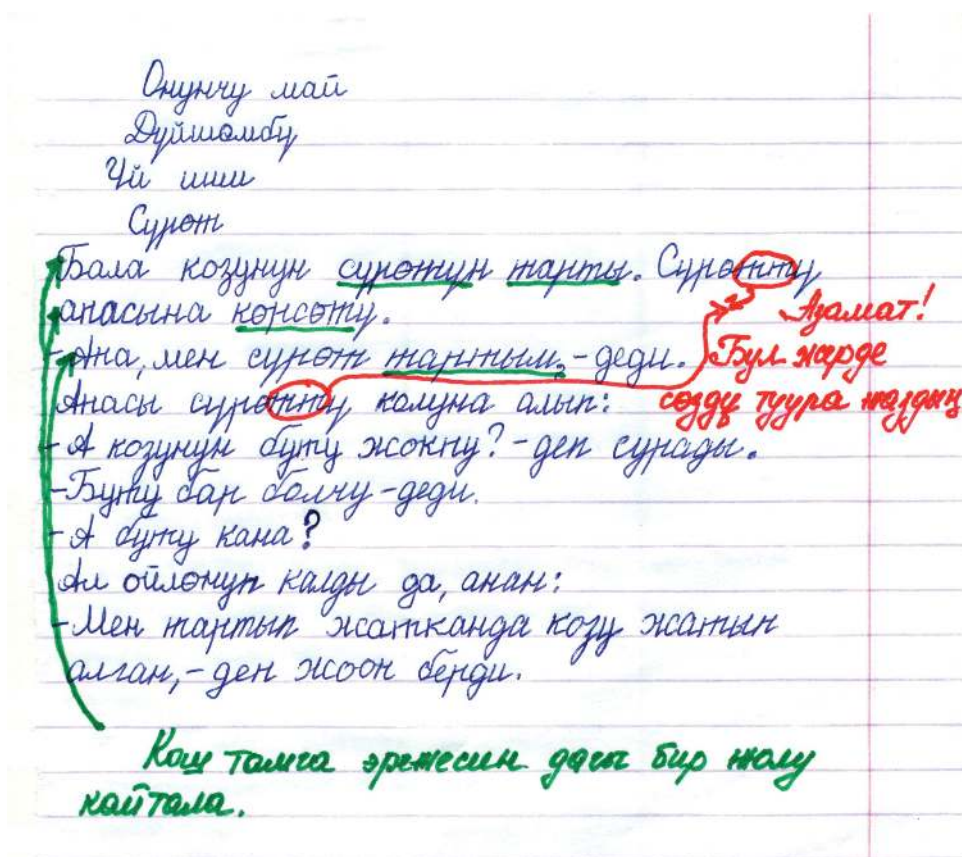 Онунчу май
Дүйшөмбү
Үй иши
Сүрөт
Бала козунун сүрөтүн тарты. Сүрөттү
апасына көрсөтү.
-Апа, мен сүрөт тартым,-деди.
Апасы сүрөттү колуна алып:
-А козунун буту жокпу?-деп сурады.
-Буту бар болчу-деди.
-А буту кана?
Ал ойлонуп калды да, анан:
-Мен тартып жатканда козу жатып
алган,-деп жооп берди.
Азамат!
Бул жерде
сөздү туура жаздың
Кош тамга эрежесин дагы бир жолу
кайтала.